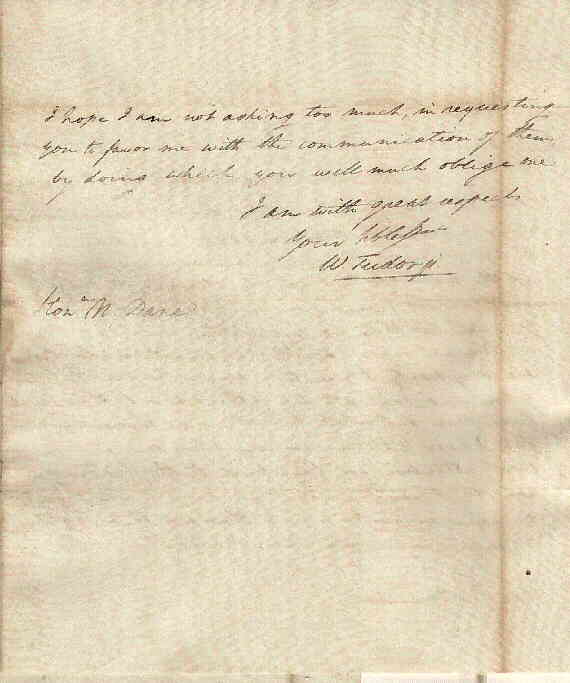 I hope I am not asking too much, in requesting
you to favor me with the communication of them,
by doing which you will much oblige me
I am with great respect
Your
W Tudor jr
Honble N Dane